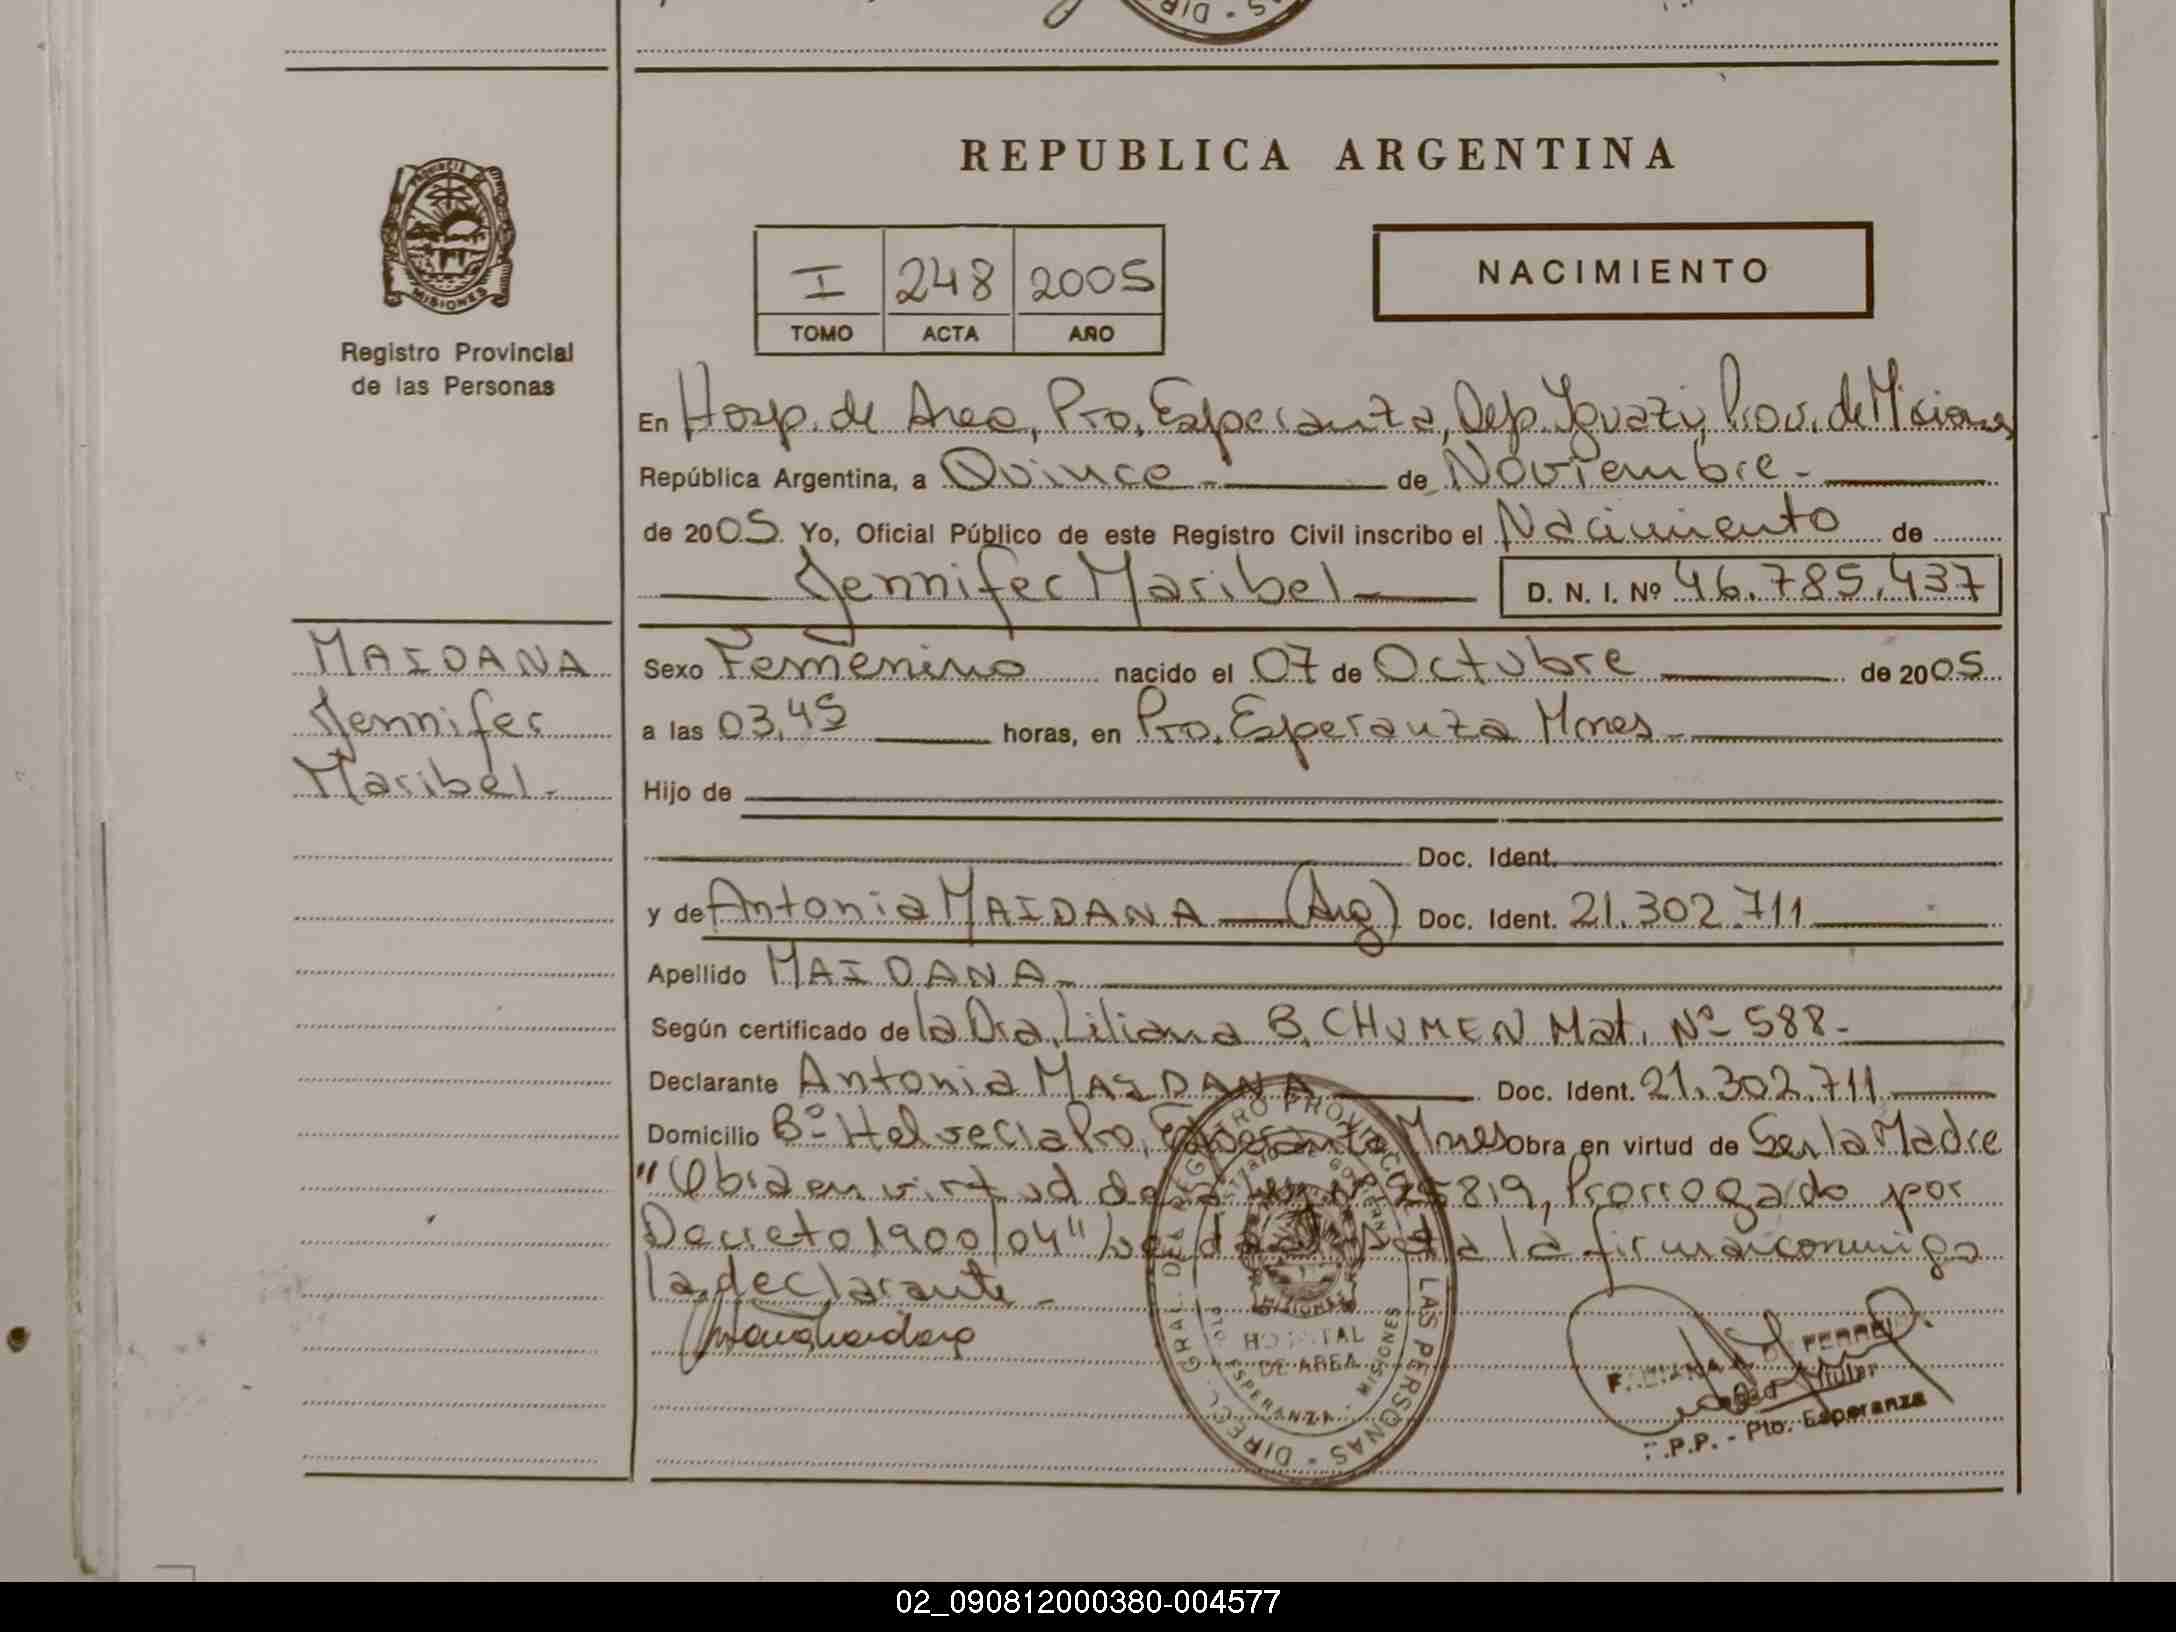 REPUBLICA ARGENTINA
MISIONES
Registro Provincial
de las Personas
I 248 2005
TOMO ACTA AÑO
NACIMIENTO
En Hosp. de Area, Pto. Esperanza, Dep. Iguazú, Prov. de Misiones
República Argentina, a Quince - de Noviembre -
de 2005 Yo, Oficial Público de este Registro Civil inscribo el Nacimiento de
Jennifer Maribel D. N. I. Nº 46.785.437
MAIDANA
Jennifer
Maribel.-
Sexo Femenino nacido el 07 de Octubre de 2005
a las 03,45 horas, en Pto. Esperanza Mnes -
Hijo de
Doc. Ident.
y de Antonia MAIDANA (Arg) Doc. Ident. 21.302.711
Apellido MAIDANA -
Según certificado de la Dra. Liliana B. CHUMEN Mat. Nº 588 -
Declarante Antonia MAIDANA Doc. Ident. 21.302.711
Domicilio Bº Helvecia Pto. Esperanza Mnes Obra en virtud de Ser la Madre
"Obra en virtud de la Ley nº 25819, Prorrogado por
Decreto 1900/04" Leída el Acta la firma conmigo
la declarante -
DIREC. GRAL. DEL REGISTRO PROVINCIAL DE LAS PERSONAS
HOSPITAL
DE AREA
ESPERANZA - MISIONES
FERREI
Titular
R.P.P. - Pto. Esperanza
02_090812000380-004577